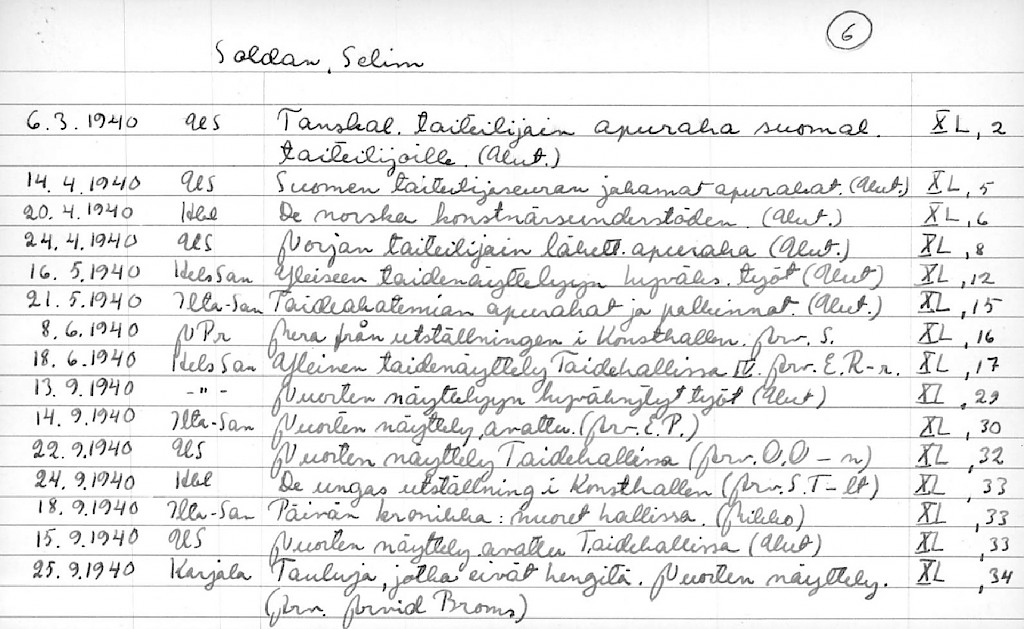 6
Soldan, Selim
6.3.1940 US Tanskal. taiteilijain apuraha suomal. XL, 2
taiteilijoille. (Uut.)
14.4.1940 US Suomen taiteilijaseuran jakamat apurahat. (Uut.) XL, 5
20.4.1940 Hbl De norska konstnärsunderstöden. (Uut.) XL, 6
24.4.1940 US Norjan taiteilijain lähett. apuraha (Uut.) XL, 8
16.5.1940 HelsSan Yleiseen taidenäyttelyyn hyväks. työt (Uut) XL, 12
21.5.1940 Ilta-San Taideakatemian apurahat ja palkinnot. (Uut.) XL, 15
8.6.1940 NPr Mera från utställningen i Konsthallen. Arv. S. XL, 16
18.6.1940 HelsSan Yleinen taidenäyttely Taidehallissa IV. Arv. E.R-r. XL, 17
13.9.1940 -"- Nuorten näyttelyyn hyväksytyt työt (Uut) XL, 29
14.9.1940 Ilta-San Nuorten näyttely avattu. (Arv. E.P.) XL, 30
22.9.1940 US Nuorten näyttely Taidehallissa (Arv. O.O-n) XL, 32
24.9.1940 Hbl De ungas utställning i Konsthallen (Arv. S.T-lt) XL, 33
18.9.1940 Ilta-San Päivän kronikka: nuoret hallissa. (Mikko) XL, 33
15.9.1940 US Nuorten näyttely avattu Taidehallissa (Uut) XL, 33
25.9.1940 Karjala Tauluja, jotka eivät hengitä. Nuorten näyttely. XL, 34
(Arv. Arvid Broms)